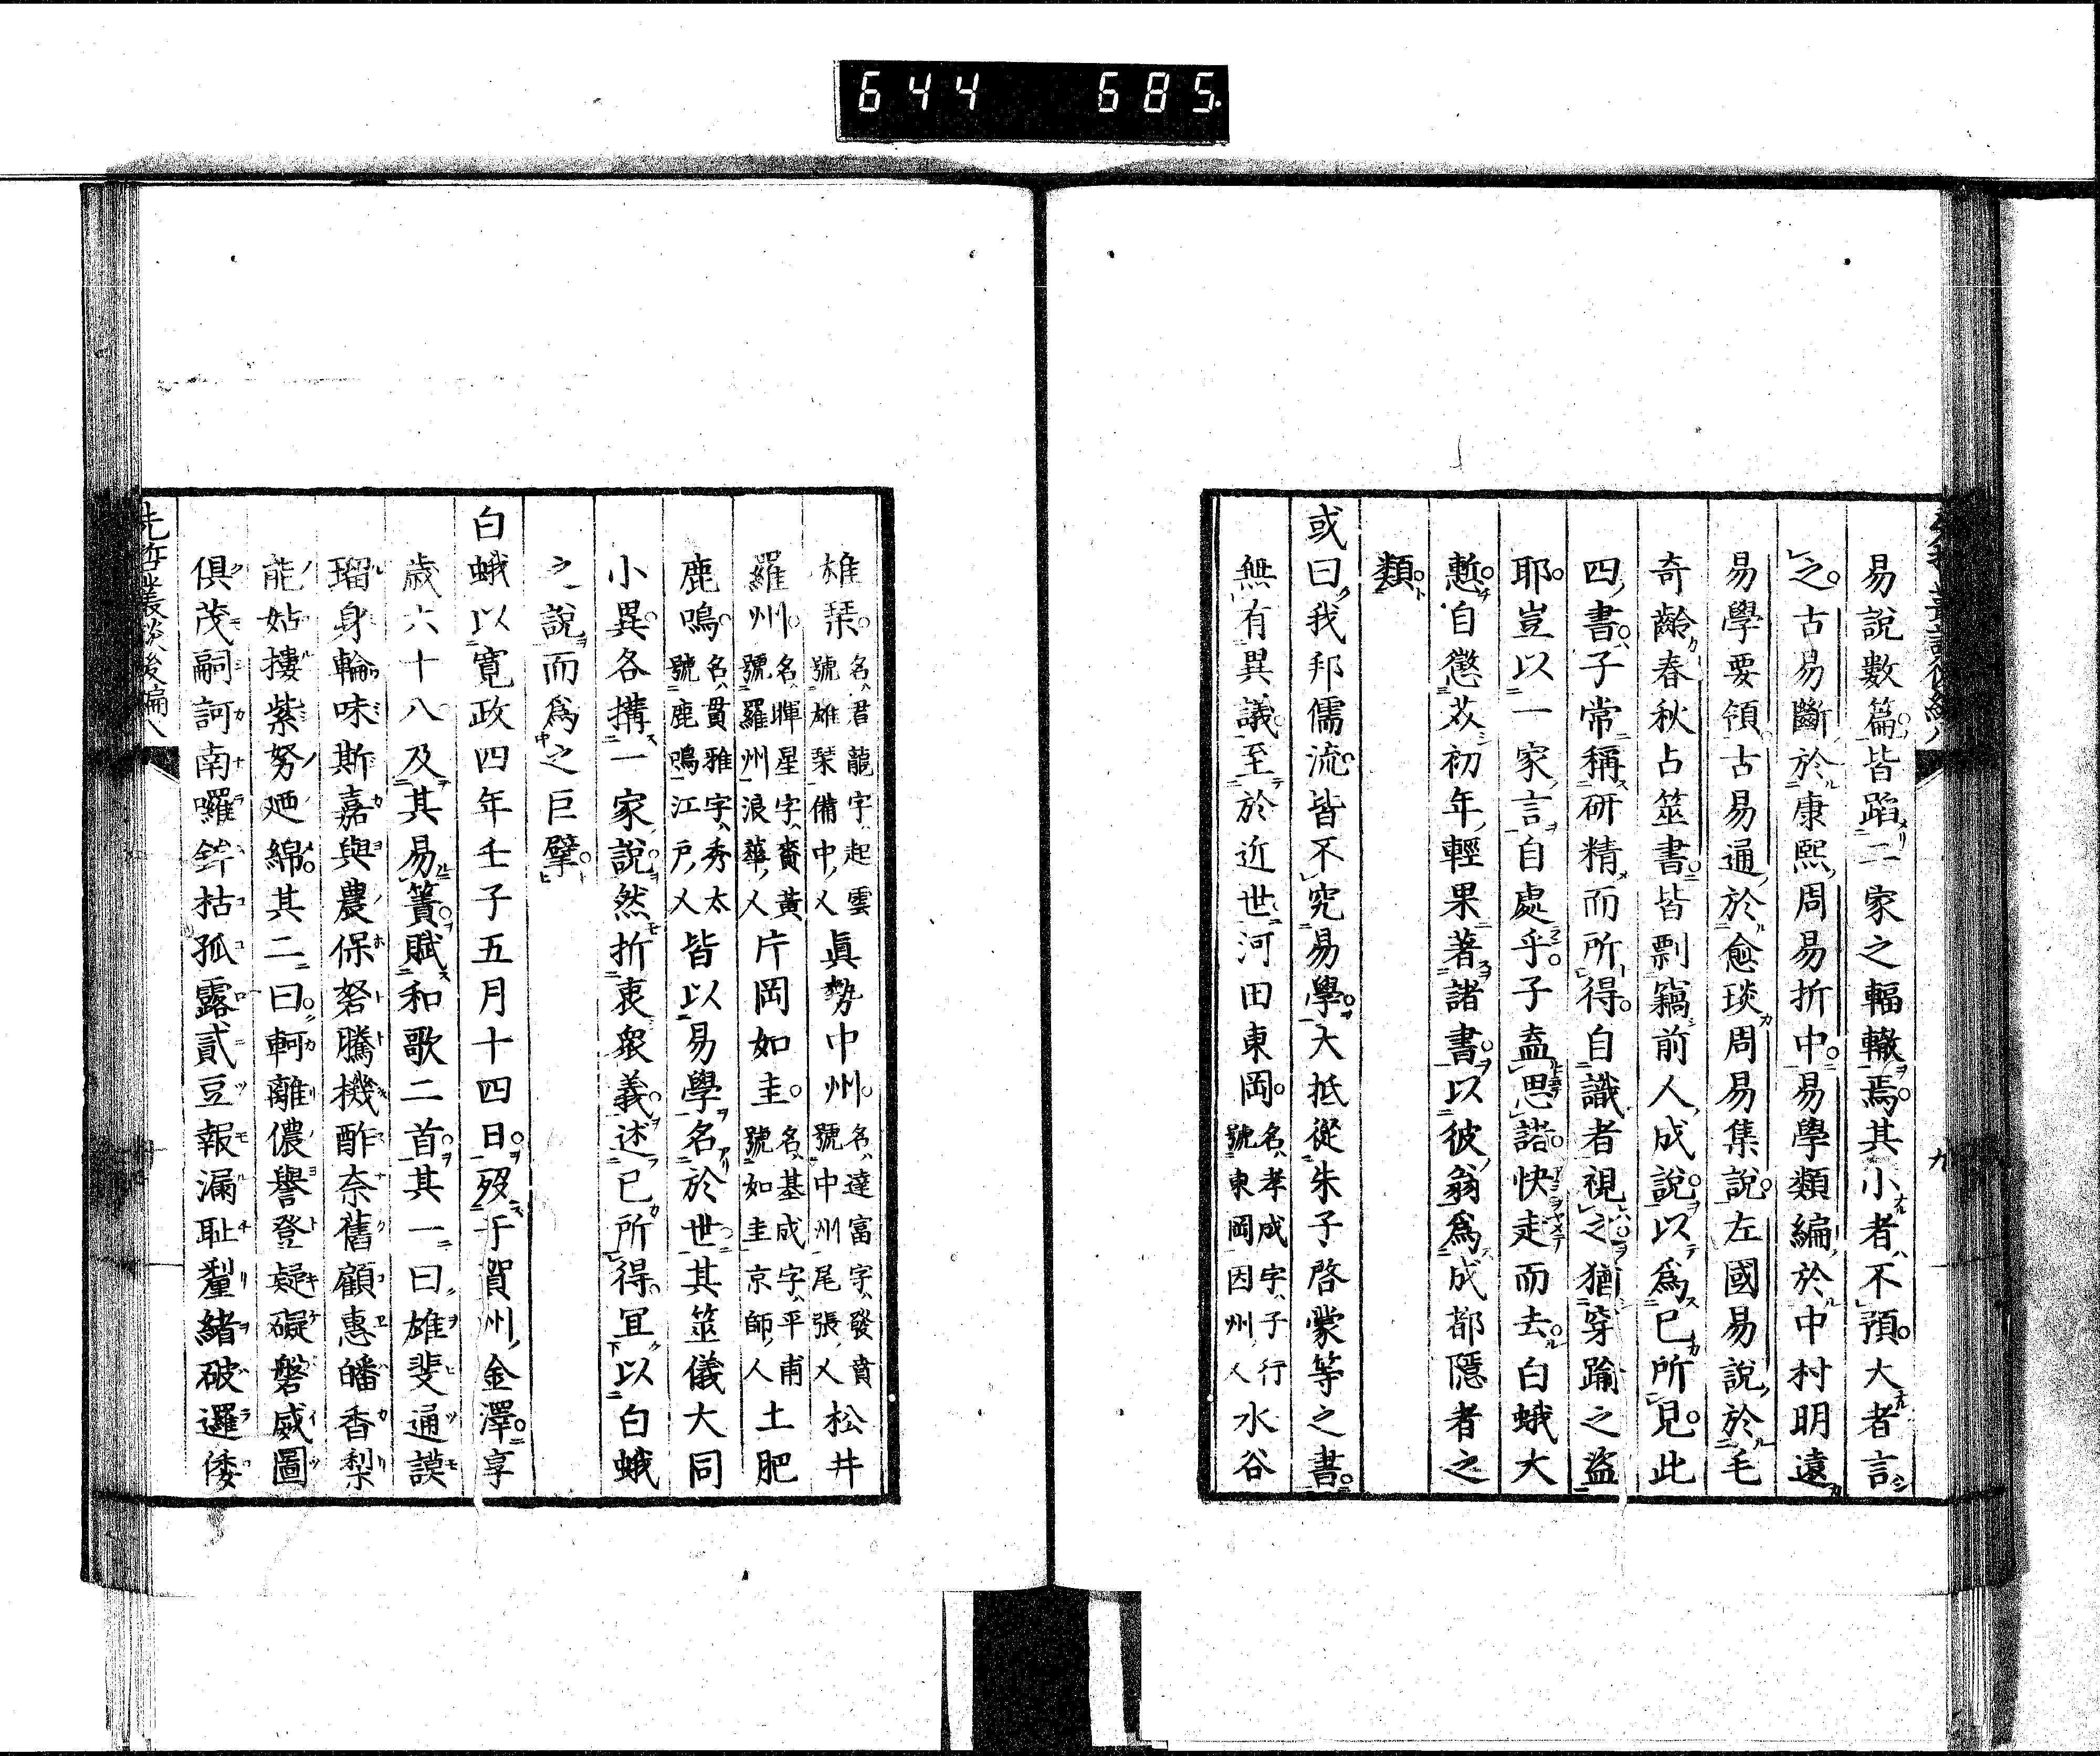 644 685
易說數篇皆蹈二家之輻轍焉其小者不預大者言
之古易斷於康熙周易折中易學類編於中村明遠
易學要領古易通於愈琰周易集說左國易說於毛
奇齡春秋占筮書皆剽竊前人成說以為已所見此
四書子常稱研精而所得自識者視之猶穿踰之盜
耶豈以一家言自處乎子盍思諸快走而去白蛾大
慙自懲艾初年輕果著諸書以彼翁為成都隱者之
類
或曰我邦儒流皆不究易學大抵從朱子啓蒙等之書
無有異議至於近世河田東岡名孝成字子行號東岡因州人水谷
雄琹名君龍字起雲號雄琹備中人眞勢中州名達富字發賁號中州尾張人松井
羅州名暉星字賚黃號羅州浪華人片岡如圭名基成字平甫號如圭京師人土肥
鹿鳴名貫雅字秀太號鹿鳴江戶人皆以易學名於世其筮儀大同
小異各搆一家說然折衷眾義述已所得冝以白蛾
之說而為之巨擘
白蛾以寬政四年壬子五月十四日歿于賀州金澤享
歲六十八及其易簀賦和歌二首其一曰雄斐通謨
瑠身輪味斯嘉與農保砮騰機酢奈舊顧惠皤香梨
能姑摟紫努廼綿其二曰軻離儂譽登疑礙磐威圖
俱茂嗣訶南囉鉾枯孤露貳豆報漏耻釐緒破邏倭
先哲叢談後編八
九